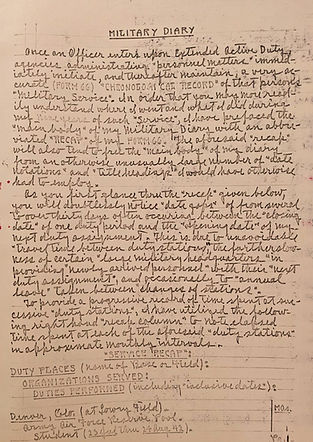 MILITARY DIARY
Once an Officer enters upon Extended Active Duty,
agencies administrating "personnel matters" immed-
iately initiate, and thereafter maintain, a very ac-
curate (FORM 66) "CHRONOLOGICAL RECORD" of that person's
"Military Service". In order that you may more read-
ily understand where I went and what I did during
my years of such "service", I have prefaced the
"main body" of my Military Diary with an abbre-
viated "RECAP" of my FORM 66. The aforesaid "recap"
will also tend to free the "main body" of my diary
from an otherwise unusually large number of "date
notations" and "title headings" I would have otherwise
had to employ.
As you first glance thru the "recap" given below,
you will doubtlessly notice "date gaps" of from several
to over thirty days often occuring between the "closing
date" of one duty period and the "opening date" of my
next duty assignment. This is due to unavoidable
"travel time between duty stations", the further slow-
ness of certain "large military headquarters" in
providing newly arrived personnel with their "next
duty assignment", and occasionally to "annual
leave" taken between changes of stations.
To provide a progressive record of time spent at suc-
cessive "duty stations", I have utilized the follow-
ing right hand "recap column" to note elapsed
time spent at each of the aforesaid "duty stations"
in approximate monthly intervals.
"SERVICE RECAP":
DUTY PLACES (name of Base or Field):
ORGANIZATIONS SERVED:
DUTIES PERFORMED (including "inclusive dates"):
Mos.
Denver, Colo. (at Lowry Field).
Army Air Force Pool.
Student